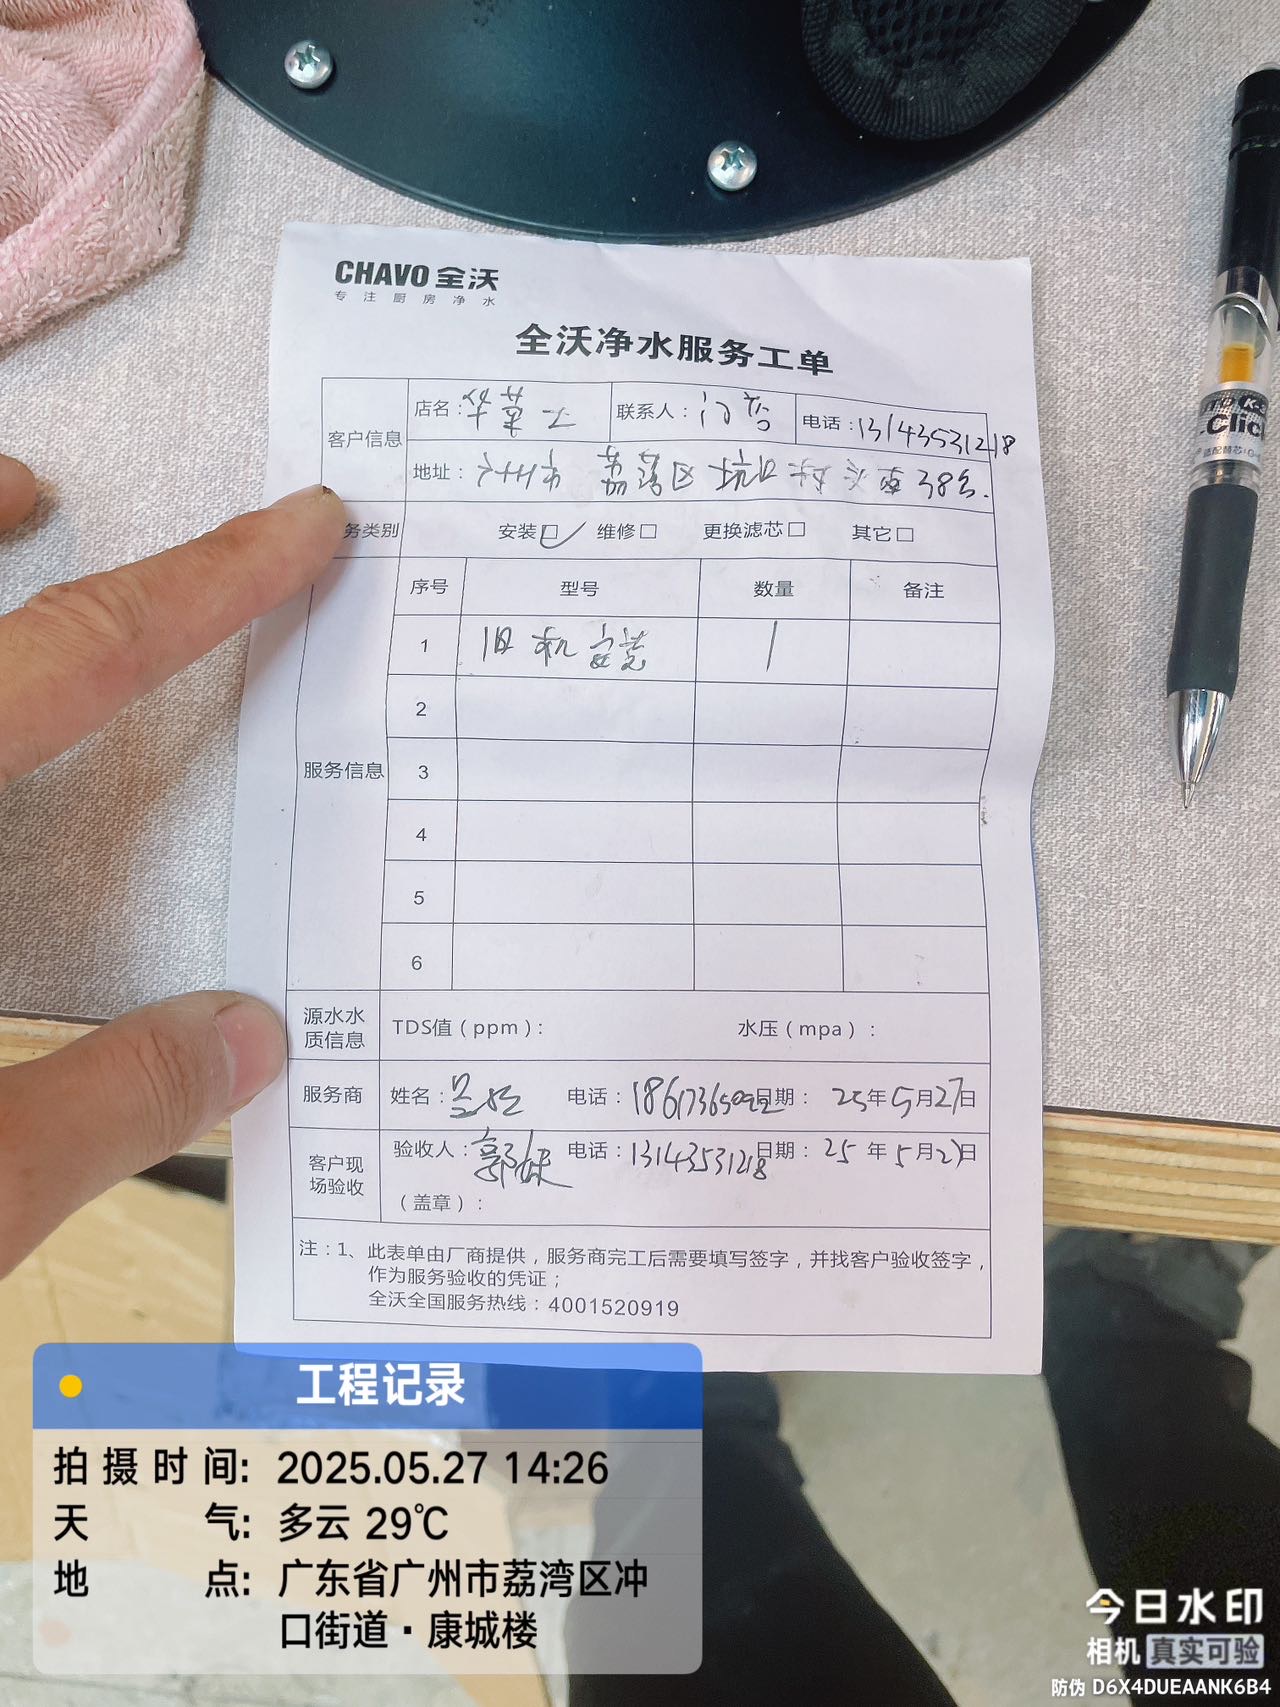 CHAVO 全沃
专注厨房净水
全沃净水服务工单
客户信息
店名： 联系人： 电话：13143531218
地址：广州市荔湾区 38号.
务类别 安装☑ 维修□ 更换滤芯□ 其它□
服务信息
序号 型号 数量 备注
1 旧机安装 1
2
3
4
5
6
源水水质信息 TDS值（ppm）： 水压（mpa）：
服务商 姓名： 电话：18617365092 日期：25年5月27日
客户现场验收 验收人：郭 电话：13143531218 日期：25年5月27日
（盖章）：
注：1、此表单由厂商提供，服务商完工后需要填写签字，并找客户验收签字，
作为服务验收的凭证；
全沃全国服务热线：4001520919
K-3
Click
适配替芯:G-
工程记录
拍摄时间: 2025.05.27 14:26
天气: 多云 29℃
地点: 广东省广州市荔湾区冲
口街道·康城楼
今日水印
相机 真实可验
防伪 D6X4DUEAANK6B4